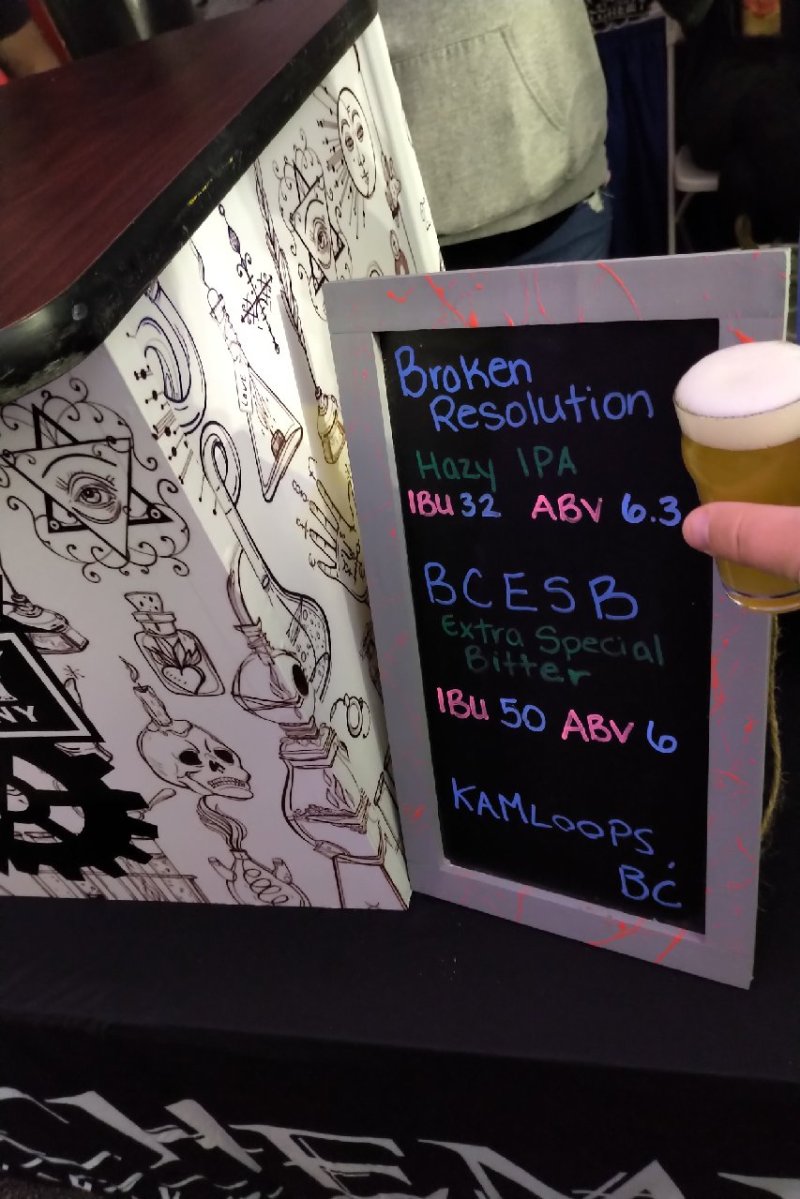 Broken
Resolution
Hazy IPA
IBU 32 ABV 6.3
BCESB
Extra Special
Bitter
IBU 50 ABV 6
KAMLOOPS.
BC
Love
NY